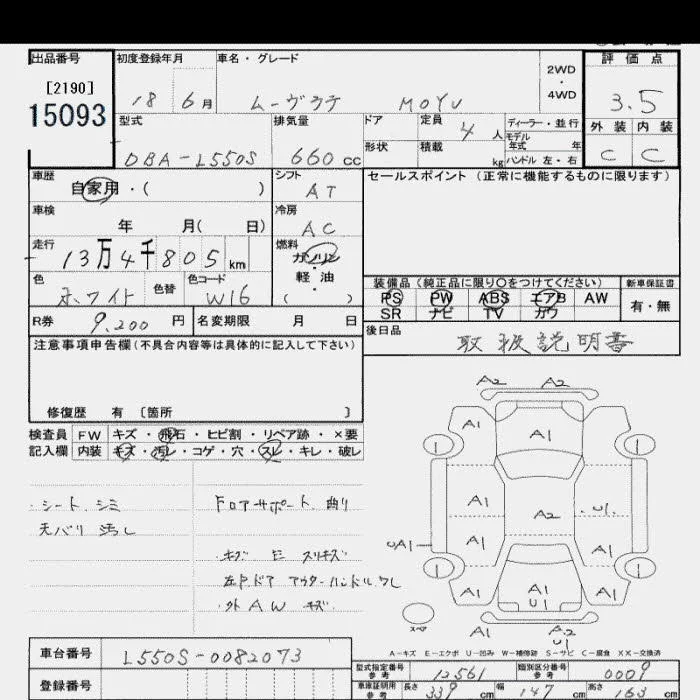 出品番号
[2190]
15093
初度登録年月
18 6月
車名・グレード
ムーヴラテ MOYU
2WD
・
4WD
評価点
3.5
外装 内装
C C
型式
DBA-L550S
排気量
660cc
ドア
定員
4人
形状
積載
kg
ディーラー・並行
モデル
年式 年
ハンドル 左・右
車歴
自家用・( )
シフト
AT
セールスポイント (正常に機能するものに限ります)
車検
年 月( 日)
冷房
AC
走行
13万4千805km
燃料
ガソリン
・
軽・油
( )
色
ホワイト
色替
色コード
W16
装備品 (純正品に限り〇をつけてください)
新車保証書
PS PW ABS エアB AW
有・無
SR ナビ TV カワ
R券
9,200円
名変期限 月 日
後日品
取扱説明書
注意事項申告欄(不具合内容等は具体的に記入して下さい)
修復歴 有 〔箇所 〕
検査員
記入欄
FW キズ・飛石・ヒビ割・リペア跡・×要
内装 キズ・汚レ・コゲ・穴・スレ・キレ・破レ
シート シミ
天バリ 汚レ
Fロアサポート 曲り
キズ E スリキズ
左Fドア アウターハンドル ワレ
外 AW キズ
A2 A2
A1
A1
1 1
A1
A1
A2
U1
UA1
A1
A1
1 1
A1
A1
U1
A1
スペア
A1
A2
U1
A-キズ E-エクボ U-凹み W-補修跡 S-サビ C-腐食 XX-交換済
車台番号
L550S-0082073
登録番号
型式指定番号
参考
12561
類別区分番号
参考
0009
車庫証明用
参考
長さ 339cm
幅 147cm
高さ 163cm